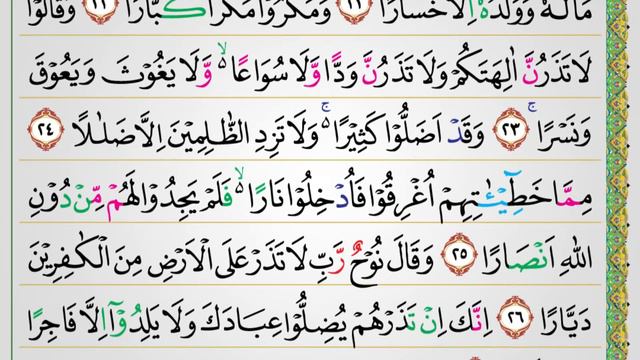 مَالُهٗ وَوَلَدُهٗۤ اِلَّا خَسَارًا ﴿٢١﴾ وَمَكَرُوْا مَكْرًا كُبَّارًا ﴿٢٢﴾ وَقَالُوْا
لَا تَذَرُنَّ اٰلِهَتَكُمْ وَلَا تَذَرُنَّ وَدًّا وَّلَا سُوَاعًا ۙ۬ وَّلَا يَغُوْثَ وَيَعُوْقَ
وَنَسْرًا ۚ ﴿٢٣﴾ وَقَدْ اَضَلُّوْا كَثِيْرًا ۚ۬ وَلَا تَزِدِ الظّٰلِمِيْنَ اِلَّا ضَلٰلًا ﴿٢٤﴾
مِمَّا خَطِيْٓـٰٔتِهِمْ اُغْرِقُوْا فَاُدْخِلُوْا نَارًا ۙ۬ فَلَمْ يَجِدُوْا لَهُمْ مِّنْ دُوْنِ
اللّٰهِ اَنْصَارًا ﴿٢٥﴾ وَقَالَ نُوْحٌ رَّبِّ لَا تَذَرْ عَلَى الْاَرْضِ مِنَ الْكٰفِرِيْنَ
دَيَّارًا ﴿٢٦﴾ اِنَّكَ اِنْ تَذَرْهُمْ يُضِلُّوْا عِبَادَكَ وَلَا يَلِدُوْۤا اِلَّا فَاجِرًا